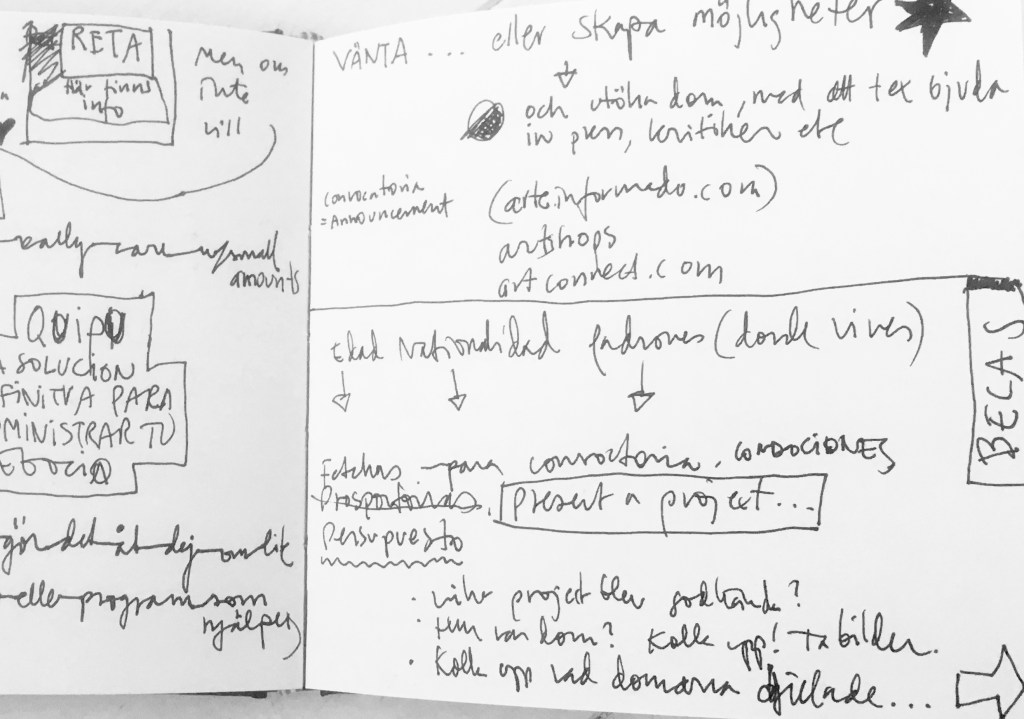 RETA
Här finns
info
Men om
inte
vill
really care if small
amounts
QUIPU
A SOLUCION
FINITVA PARA
MINISTRAR TU
gör det åt dej om lit
elle program som
hjälper
VÄNTA ... eller skapa möjligheter
och utöka dom, med att tex bjuda
in press, kritiker etc
convocatoria
= Announcement
(arteinformado.com)
artshops
artconnect.com
Edad Nationalidad Padrones (donde vives)
BECAS
Fetchas para convoctoria. CONDOCIONES
present a project...
Persupuesto
• vilka projest blev godkända?
• Hur var dom? Kolla upp! Ta bilder.
• Kolla upp vad domarna gillade...